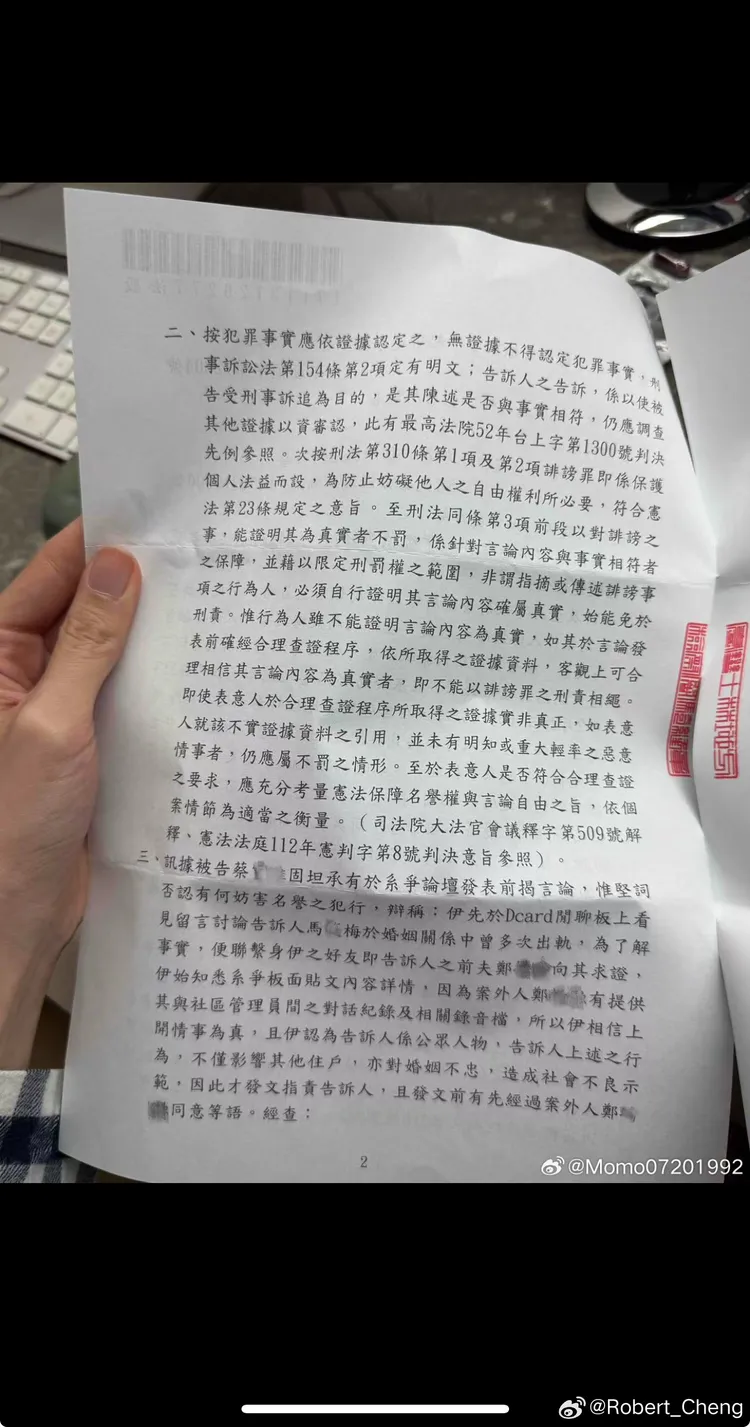 二、按犯罪事實應依證據認定之，無證據不得認定犯罪事實，刑
事訴訟法第154條第2項定有明文；告訴人之告訴，係以使被
告受刑事訴追為目的，是其陳述是否與事實相符，仍應調查
其他證據以資審認，此有最高法院52年台上字第1300號判決
先例參照。次按刑法第310條第1項及第2項誹謗罪即係保護
個人法益而設，為防止妨礙他人之自由權利所必要，符合憲
法第23條規定之意旨。至刑法同條第3項前段以對誹謗之
事，能證明其為真實者不罰，係針對言論內容與事實相符者
之保障，並藉以限定刑罰權之範圍，非謂指摘或傳述誹謗事
項之行為人，必須自行證明其言論內容確屬真實，始能免於
刑責。惟行為人雖不能證明言論內容為真實，如其於言論發
表前確經合理查證程序，依所取得之證據資料，客觀上可合
理相信其言論內容為真實者，即不能以誹謗罪之刑責相繩。
即使表意人於合理查證程序所取得之證據實非真正，如表意
人就該不實證據資料之引用，並未有明知或重大輕率之惡意
情事者，仍應屬不罰之情形。至於表意人是否符合合理查證
之要求，應充分考量憲法保障名譽權與言論自由之旨，依個
案情節為適當之衡量。（司法院大法官會議釋字第509號解
釋、憲法法庭112年憲判字第8號判決意旨參照）。
三、訊據被告蔡 固坦承有於系爭論壇發表前揭言論，惟堅詞
否認有何妨害名譽之犯行，辯稱：伊先於Dcard閒聊板上看
見留言討論告訴人馬 梅於婚姻關係中曾多次出軌，為了解
事實，便聯繫身伊之好友即告訴人之前夫鄭 向其求證，
伊始知悉系爭板面貼文內容詳情，因為案外人鄭 有提供
其與社區管理員間之對話紀錄及相關錄音檔，所以伊相信上
開情事為真，且伊認為告訴人係公眾人物，告訴人上述之行
為，不僅影響其他住戶，亦對婚姻不忠，造成社會不良示
範，因此才發文指責告訴人，且發文前有先經過案外人鄭
同意等語。經查：
2
@Momo07201992
@Robert_Cheng